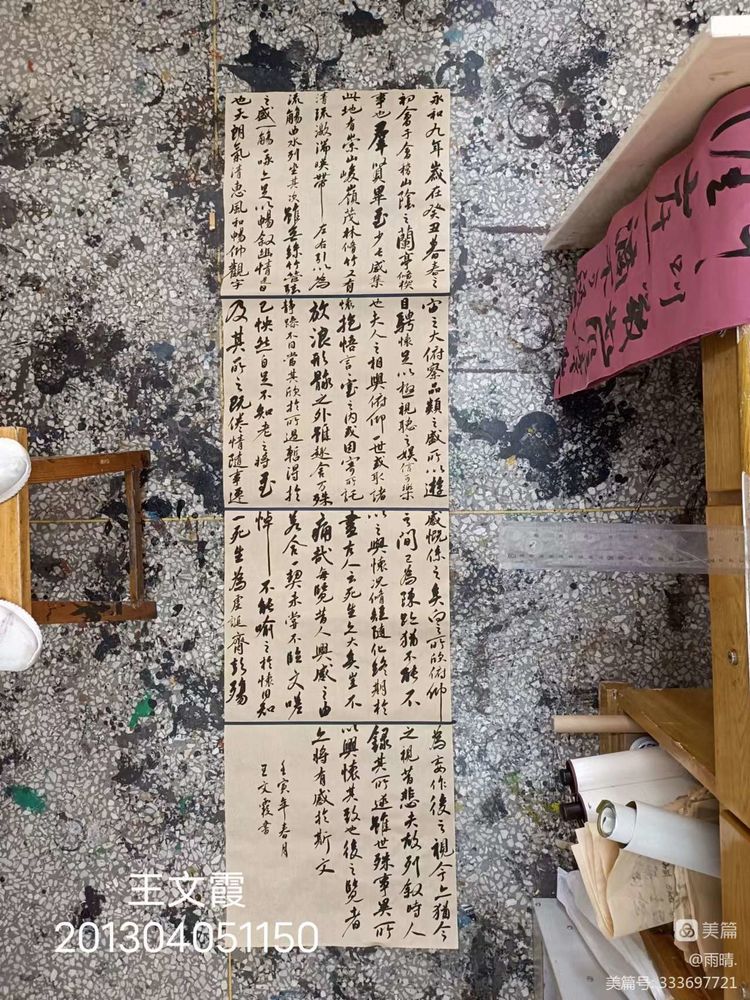 永和九年歲在癸丑暮春之
初會于會稽山陰之蘭亭脩禊
事也羣賢畢至少長咸集
此地有崇山峻嶺茂林脩竹又有
清流激湍映帶左右引以為
流觴曲水列坐其次雖無絲竹管弦
之盛一觴一詠亦足以暢敘幽情是日
也天朗氣清惠風和暢仰觀宇
宙之大俯察品類之盛所以遊
目騁懷足以極視聽之娛信可樂
也夫人之相與俯仰一世或取諸
懷抱悟言一室之內或因寄所託
放浪形骸之外雖趣舍萬殊
靜躁不同當其欣於所遇輒得於
己怏然自足不知老之將至
及其所之既倦情隨事遷
感慨係之矣向之所欣俯仰
之間已為陳跡猶不能不
以之興懷況脩短隨化終期於
盡古人云死生亦大矣豈不
痛哉每覽昔人興感之由
若合一契未嘗不臨文嗟
悼不能喻之於懷固知
一死生為虛誕齊彭殤
為妄作後之視今亦猶今
之視昔悲夫故列敘時人
錄其所述雖世殊事異所
以興懷其致也後之覽者
亦將有感於斯文
壬寅年春月
王文霞書
王文霞
201304051150
美篇
@雨晴.
美篇号:333697721